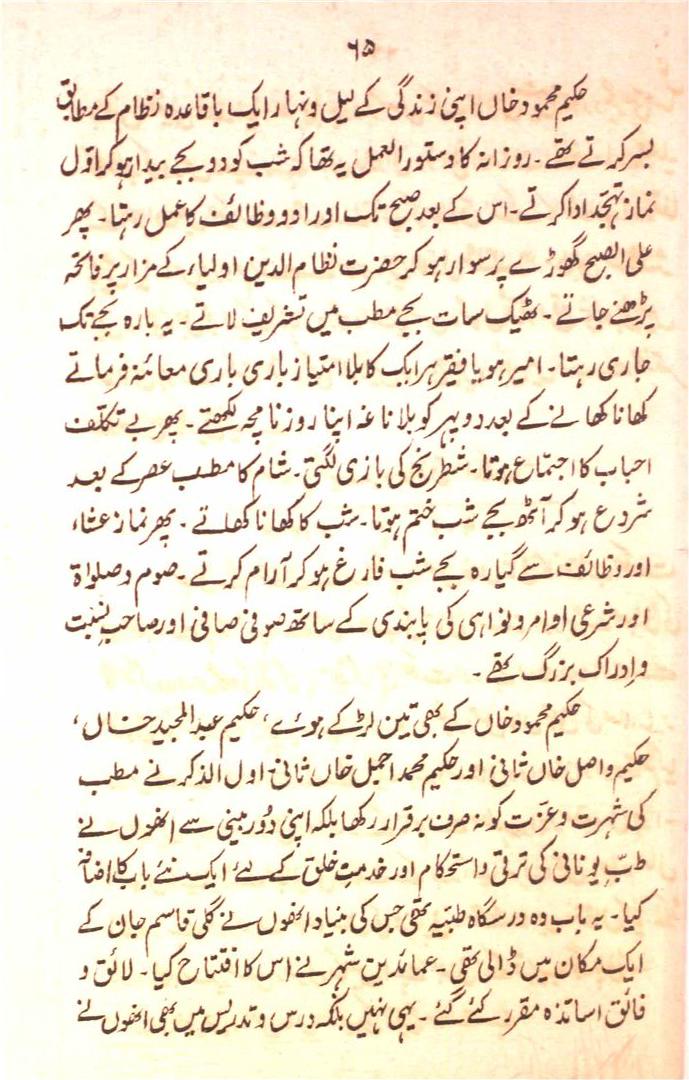 ۶۵
حکیم محمود خاں اپنی زندگی کے لیل و نہار ایک باقاعدہ نظام کے مطابق
بسر کرتے تھے۔ روزانہ کا دستور العمل یہ تھا کہ شب کو دو بجے بیدار ہو کر اوّل
نماز تہجّد ادا کرتے۔ اس کے بعد صبح تک اوراد و وظائف کا عمل رہتا۔ پھر
علی الصبح گھوڑے پر سوار ہو کر حضرت نظام الدین اولیاء کے مزار پر فاتحہ
پڑھنے جاتے۔ ٹھیک سات بجے مطب میں تشریف لاتے۔ یہ بارہ بجے تک
جاری رہتا۔ امیر ہو یا فقیر ہر ایک کا بلا امتیاز باری باری معائنہ فرماتے
کھانا کھانے کے بعد دوپہر کو بلا ناغہ اپنا روزنامچہ لکھتے۔ پھر بے تکلّف
احباب کا اجتماع ہوتا۔ شطرنج کی بازی لگتی۔ شام کا مطب عصر کے بعد
شروع ہو کر آٹھ بجے شب ختم ہوتا۔ شب کا کھانا کھاتے۔ پھر نماز عشاء
اور وظائف سے گیارہ بجے شب فارغ ہو کر آرام کرتے۔ صوم و صلواۃ
اور شرعی اوامر و نواہی کی پابندی کے ساتھ صوفی صافی اور صاحبِ نسبت
و ادراک بزرگ تھے۔
حکیم محمود خاں کے بھی تین لڑکے ہوئے، حکیم عبدالمجید خاں،
حکیم واصل خاں ثانی اور حکیم محمد اجمل خاں ثانی۔ اول الذکر نے مطب
کی شہرت و عزّت کو نہ صرف برقرار رکھا بلکہ اپنی دُور بینی سے انھوں نے
طبِّ یونانی کی ترقی و استحکام اور خدمتِ خلق کے لئے ایک نئے باب کا اضافہ
کیا۔ یہ باب وہ درسگاہ طبّیہ تھی جس کی بنیاد انھوں نے گلی قاسم جان کے
ایک مکان میں ڈالی تھی۔ عمائدین شہر نے اس کا افتتاح کیا۔ لائق و
فائق اساتذہ مقرر کئے گئے۔ یہی نہیں بلکہ درس و تدریس میں بھی انھوں نے